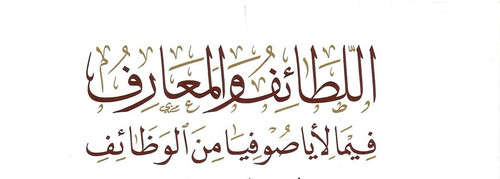 اللَّطَائِفُ وَالمَعَارِفُ
فِيمَا لِأَيَا صُوفِيَا مِنَ الوَظَائِفِ